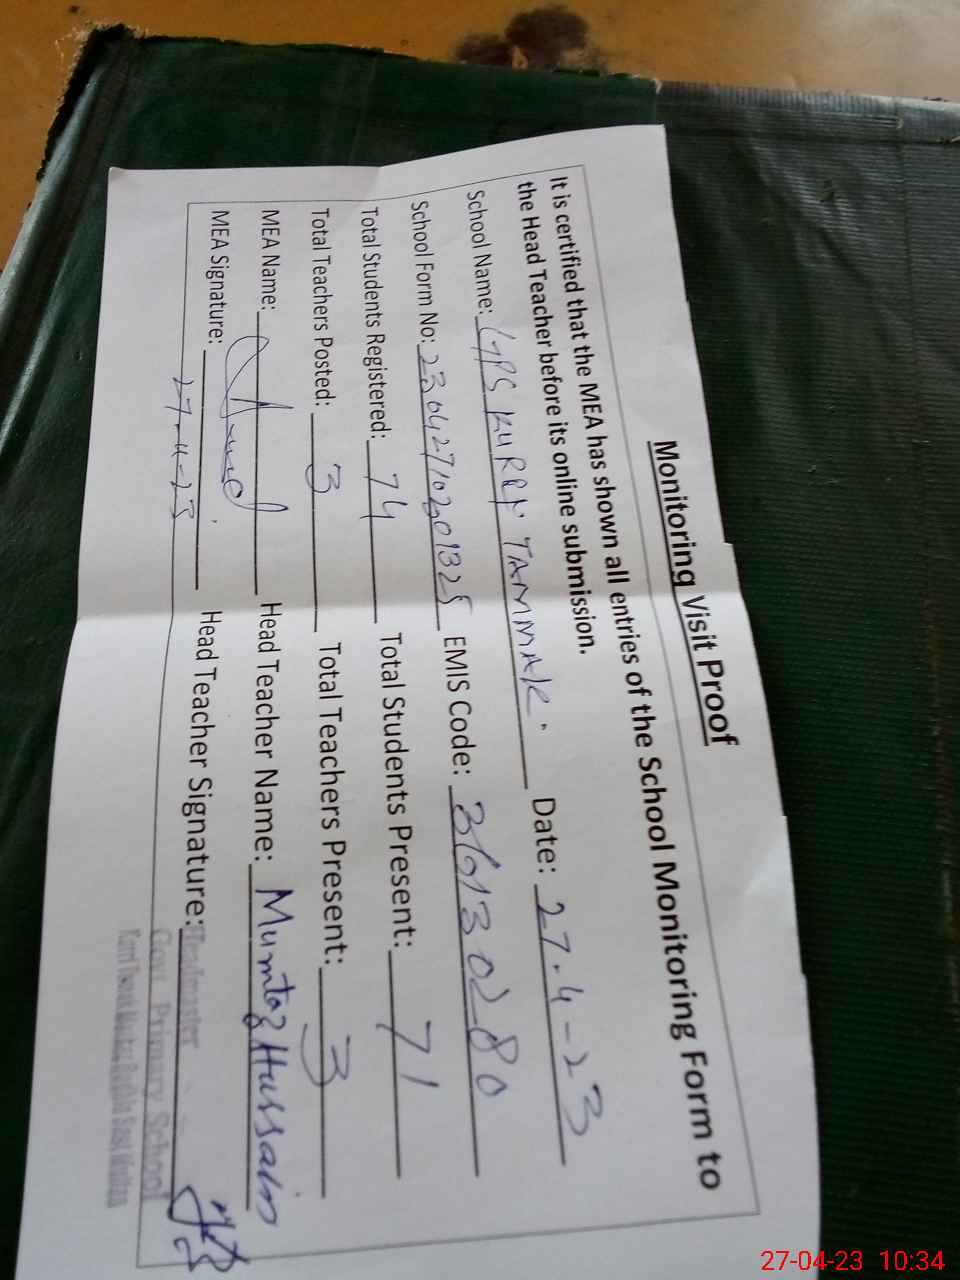 Monitoring Visit Proof
It is certified that the MEA has shown all entries of the School Monitoring Form to
the Head Teacher before its online submission.
School Name: GPS KURRY TAMMAR. Date: 27.4-23
School Form No: 23042710201325 EMIS Code: 36130280
Total Students Registered: 74 Total Students Present: 71
Total Teachers Posted: 3 Total Teachers Present: 3
MEA Name: Head Teacher Name: Mumtaz Hussain
MEA Signature: Head Teacher Signature:
27-4-23
Headmaster
Govt. Primary School
27-04-23 10:34